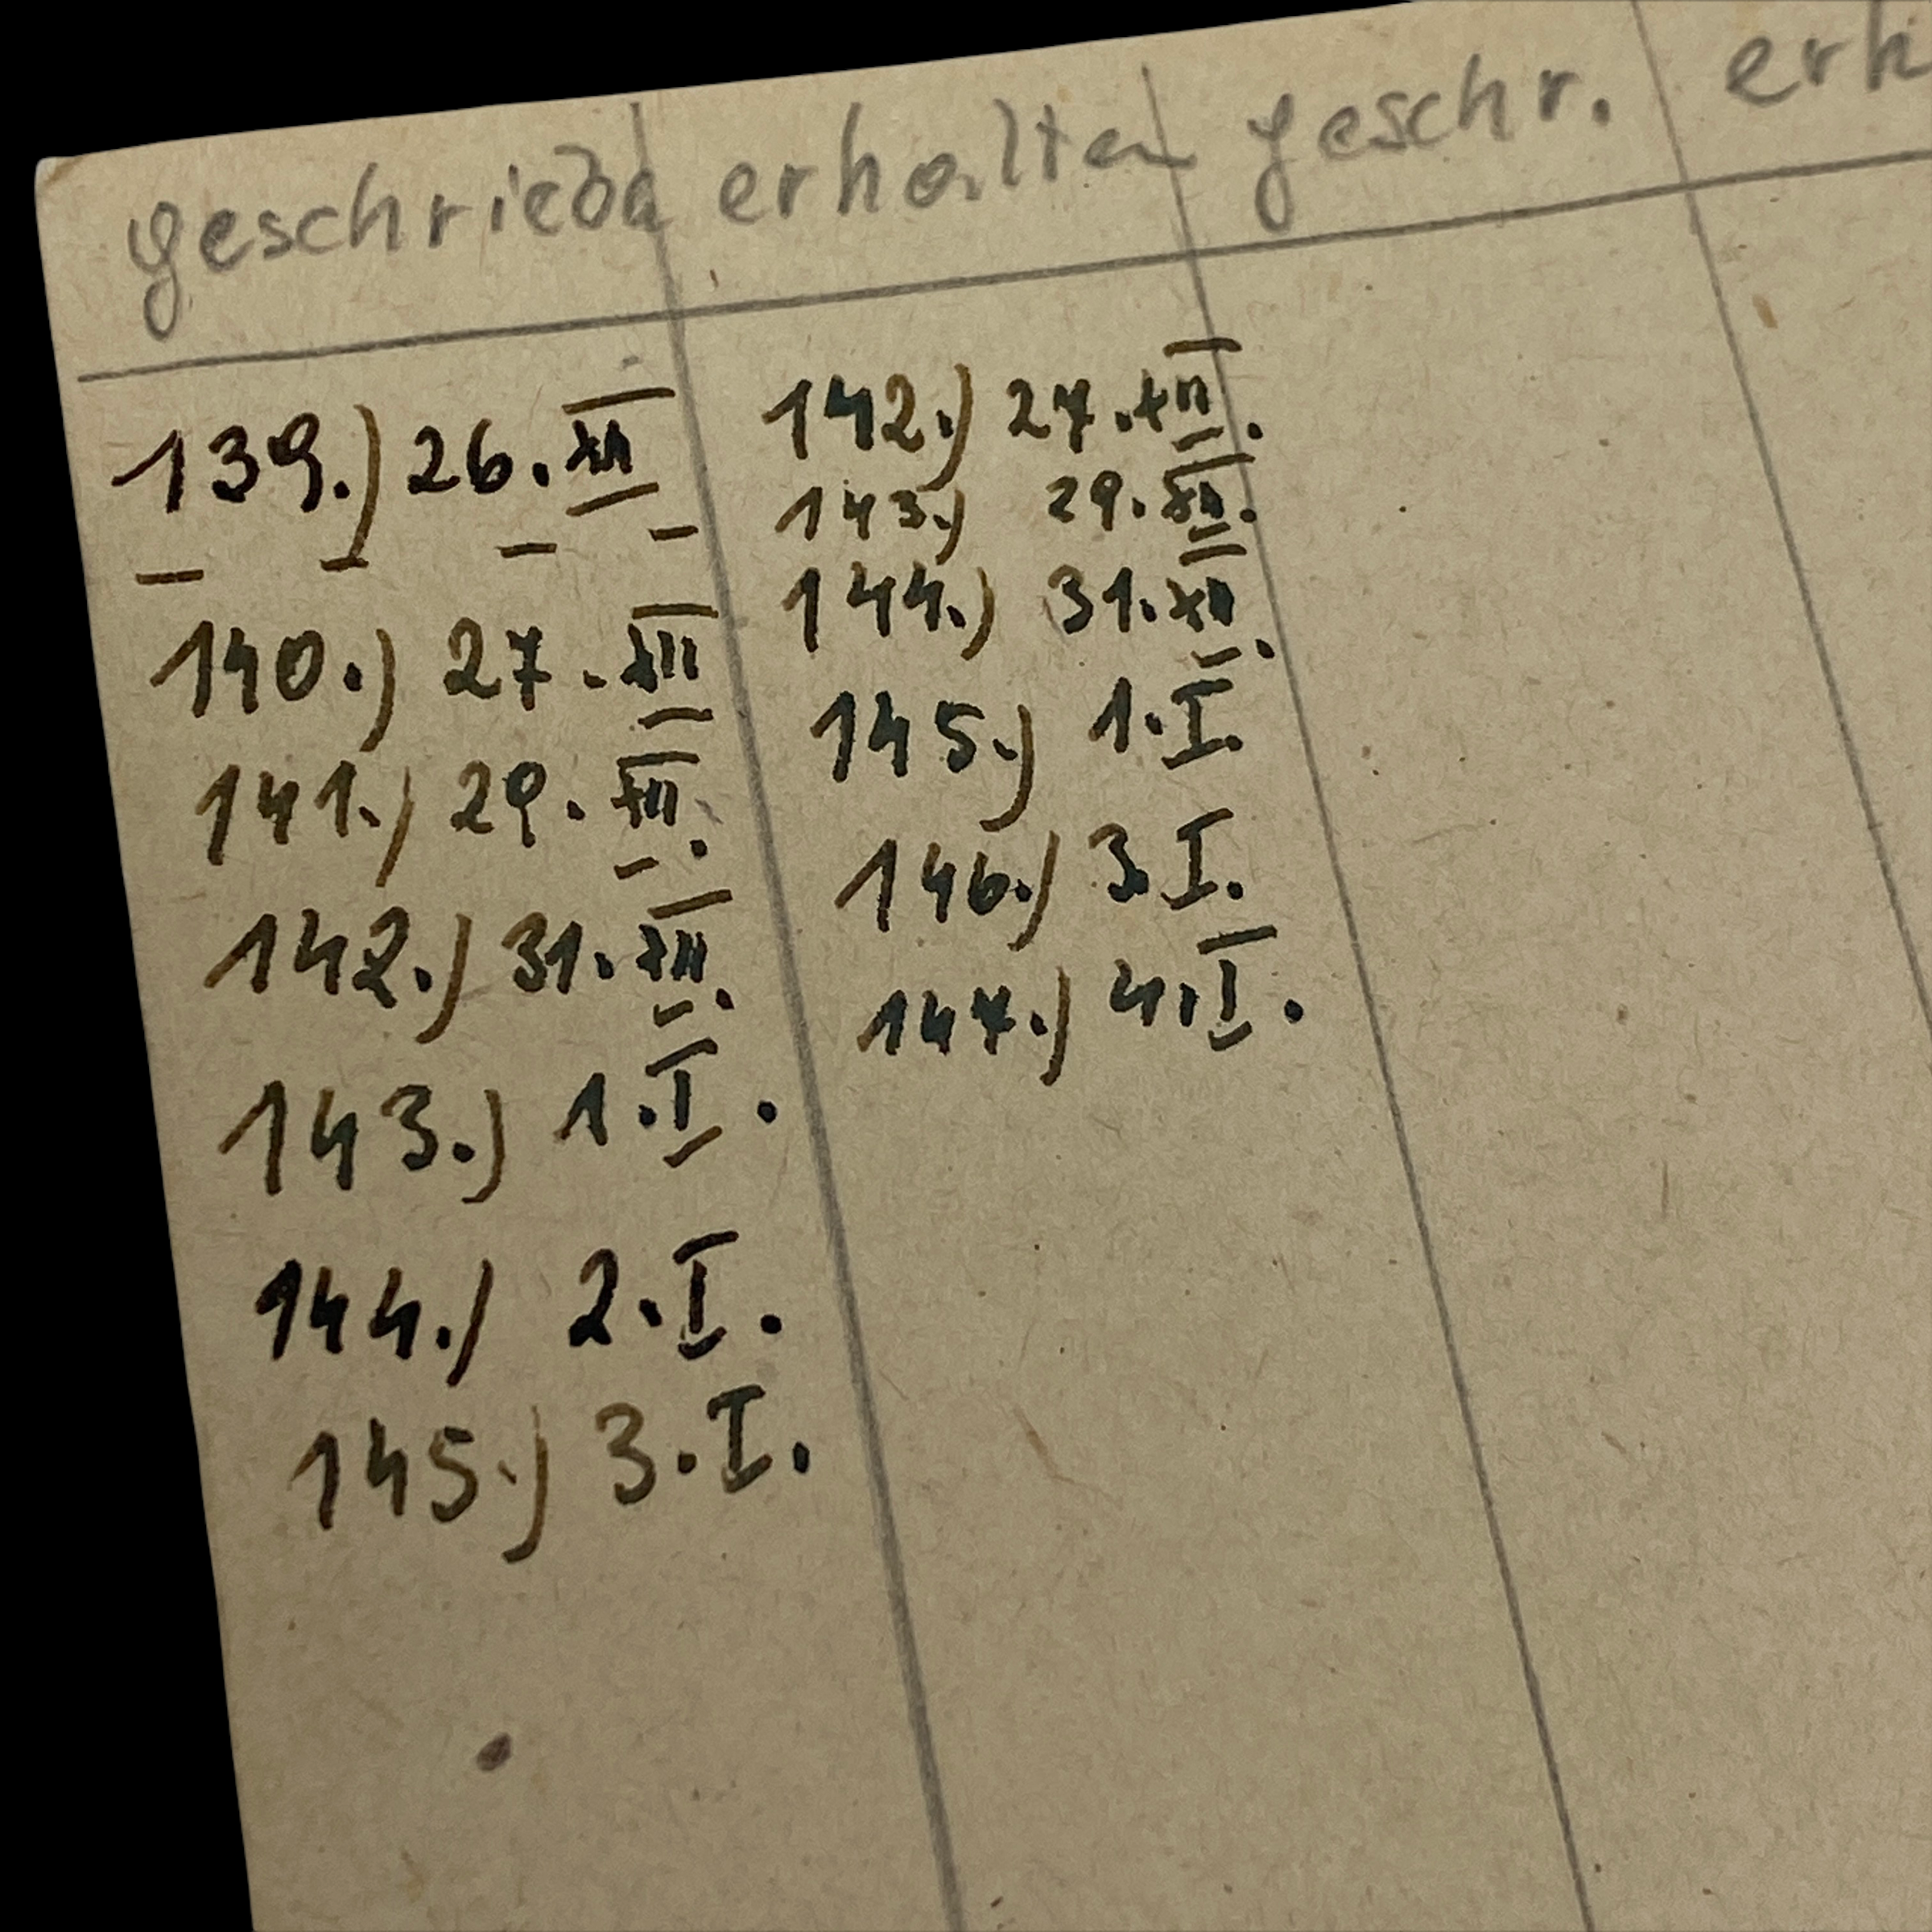 geschrieben erhalten geschr. erh
139.) 26. XII
140.) 27. XII
141.) 29. XII.
142.) 31. XII.
143.) 1. I.
144.) 2. I.
145.) 3. I.
142.) 27. XII.
143.) 29. XII.
144.) 31. XII.
145.) 1. I.
146.) 3. I.
147.) 4. I.